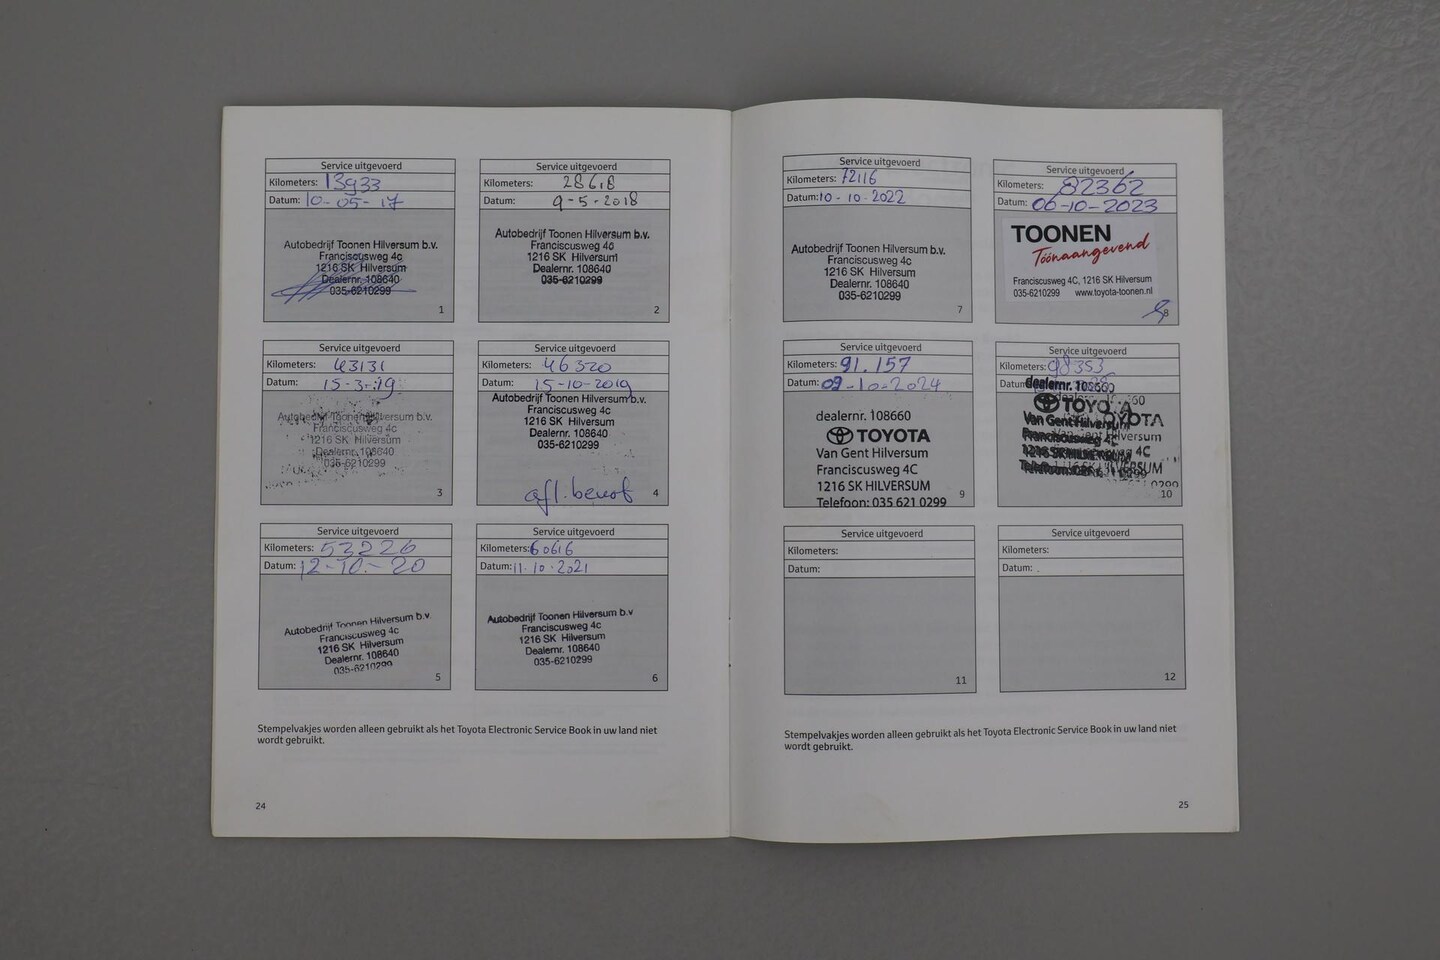 Service uitgevoerd
Kilometers: 13933
Datum: 10-05-17
Autobedrijf Toonen Hilversum b.v.
Franciscusweg 4c
1216 SK Hilversum
Dealernr. 108640
035-6210299
1
Service uitgevoerd
Kilometers: 28618
Datum: 9-5-2018
Autobedrijf Toonen Hilversum b.v.
Franciscusweg 4c
1216 SK Hilversum
Dealernr. 108640
035-6210299
2
Service uitgevoerd
Kilometers: 43131
Datum: 15-3-19
Autobedrijf Toonen Hilversum b.v.
Franciscusweg 4c
1216 SK Hilversum
Dealernr. 108640
035-6210299
3
Service uitgevoerd
Kilometers: 46320
Datum: 15-10-2019
Autobedrijf Toonen Hilversum b.v.
Franciscusweg 4c
1216 SK Hilversum
Dealernr. 108640
035-6210299
4
Service uitgevoerd
Kilometers: 53226
Datum: 12-10-20
Autobedrijf Toonen Hilversum b.v
Franciscusweg 4c
1216 SK Hilversum
Dealernr. 108640
035-6210299
5
Service uitgevoerd
Kilometers: 60616
Datum: 11-10-2021
Autobedrijf Toonen Hilversum b.v
Franciscusweg 4c
1216 SK Hilversum
Dealernr. 108640
035-6210299
6
Stempelvakjes worden alleen gebruikt als het Toyota Electronic Service Book in uw land niet
wordt gebruikt.
24
Service uitgevoerd
Kilometers: 72116
Datum: 10-10-2022
Autobedrijf Toonen Hilversum b.v.
Franciscusweg 4c
1216 SK Hilversum
Dealernr. 108640
035-6210299
7
Service uitgevoerd
Kilometers: 82362
Datum: 06-10-2023
TOONEN
Töónaangevend
Franciscusweg 4C, 1216 SK Hilversum
035-6210299 www.toyota-toonen.nl
8
Service uitgevoerd
Kilometers: 91.157
Datum: 09-10-2024
dealernr. 108660
TOYOTA
Van Gent Hilversum
Franciscusweg 4C
1216 SK HILVERSUM
Telefoon: 035 621 0299
9
Service uitgevoerd
Kilometers: 98353
Datum:
dealernr. 108660
TOYOTA
Van Gent Hilversum
Franciscusweg 4C
1216 SK HILVERSUM
10
Service uitgevoerd
Kilometers:
Datum:
11
Service uitgevoerd
Kilometers:
Datum:
12
Stempelvakjes worden alleen gebruikt als het Toyota Electronic Service Book in uw land niet
wordt gebruikt.
25